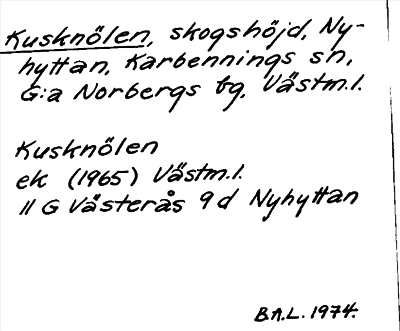 Kusknölen, skogshöjd, Ny-
hyttan, Karbennings sn,
G:a Norbergs bg, Västm.l.
Kusknölen
ek (1965) Västm.l.
11 G Västerås 9d Nyhyttan
B.A.L. 1974.